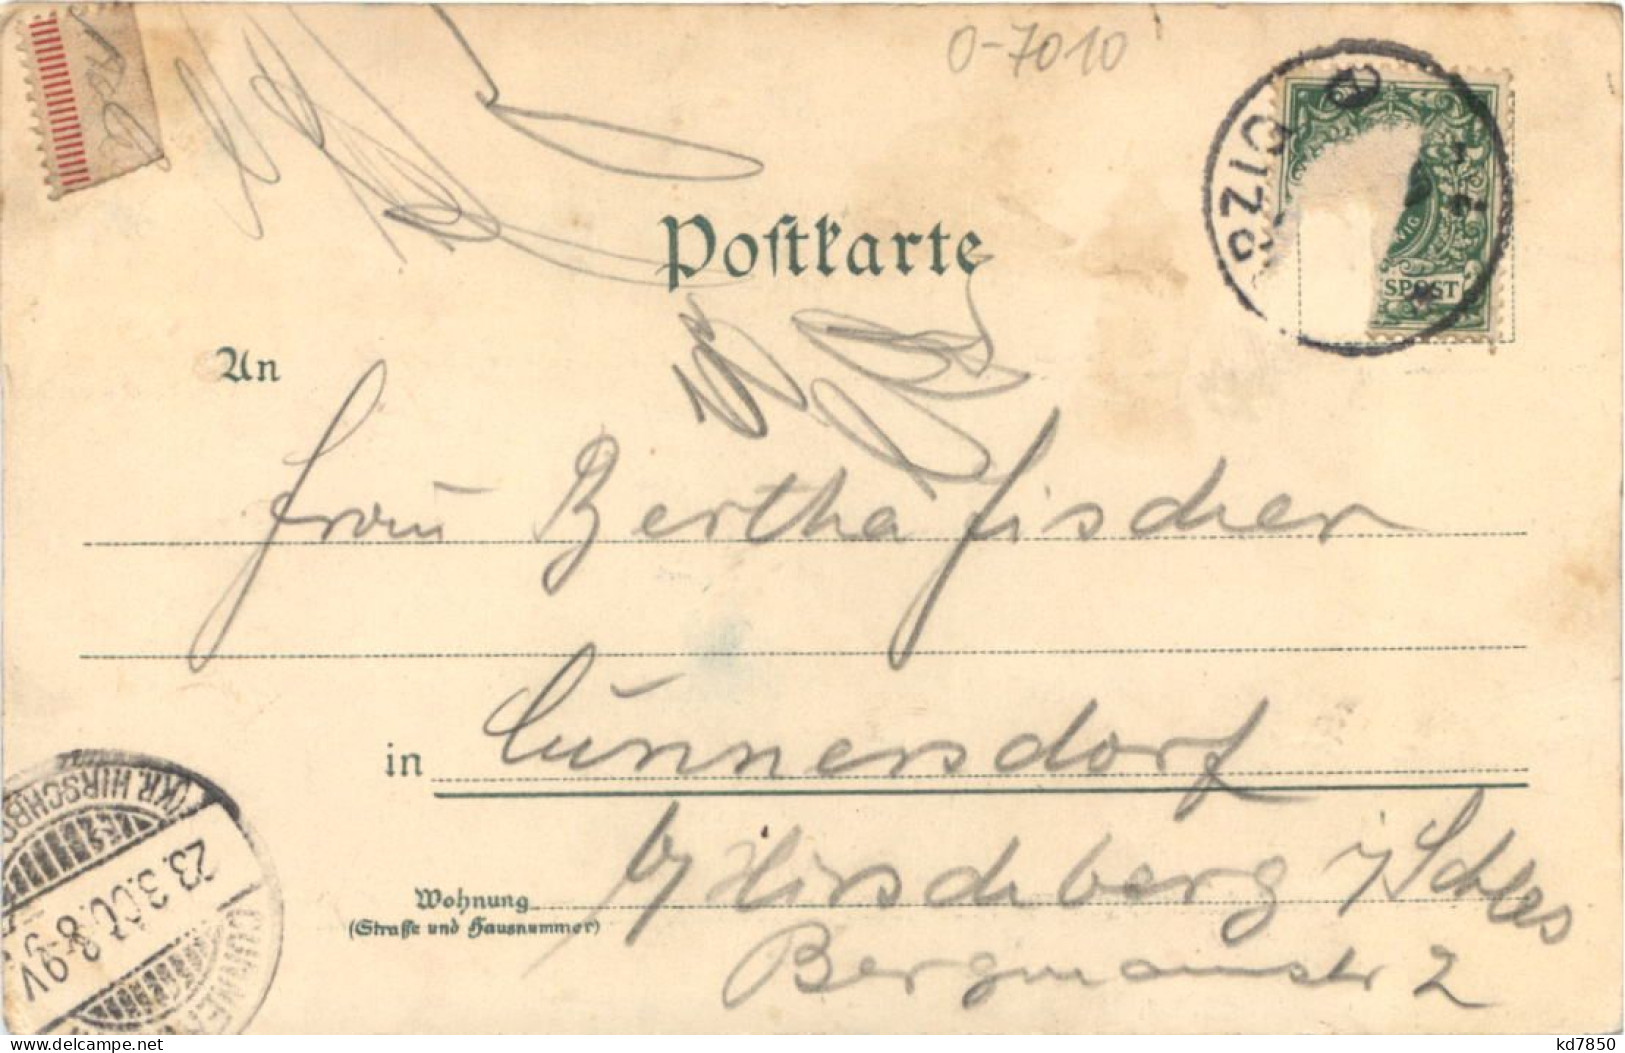 0-7010
Postkarte
An
Frau Bertha Fischer
in Cunnersdorf
b/ Hirschberg i/ Schles
Wohnung
(Straße und Hausnummer)
Bergmannstr 2
SPOST
(KR. HIRSCHB
23.3.00.8-9V.
CUNNER
delcampe.net
kd7850